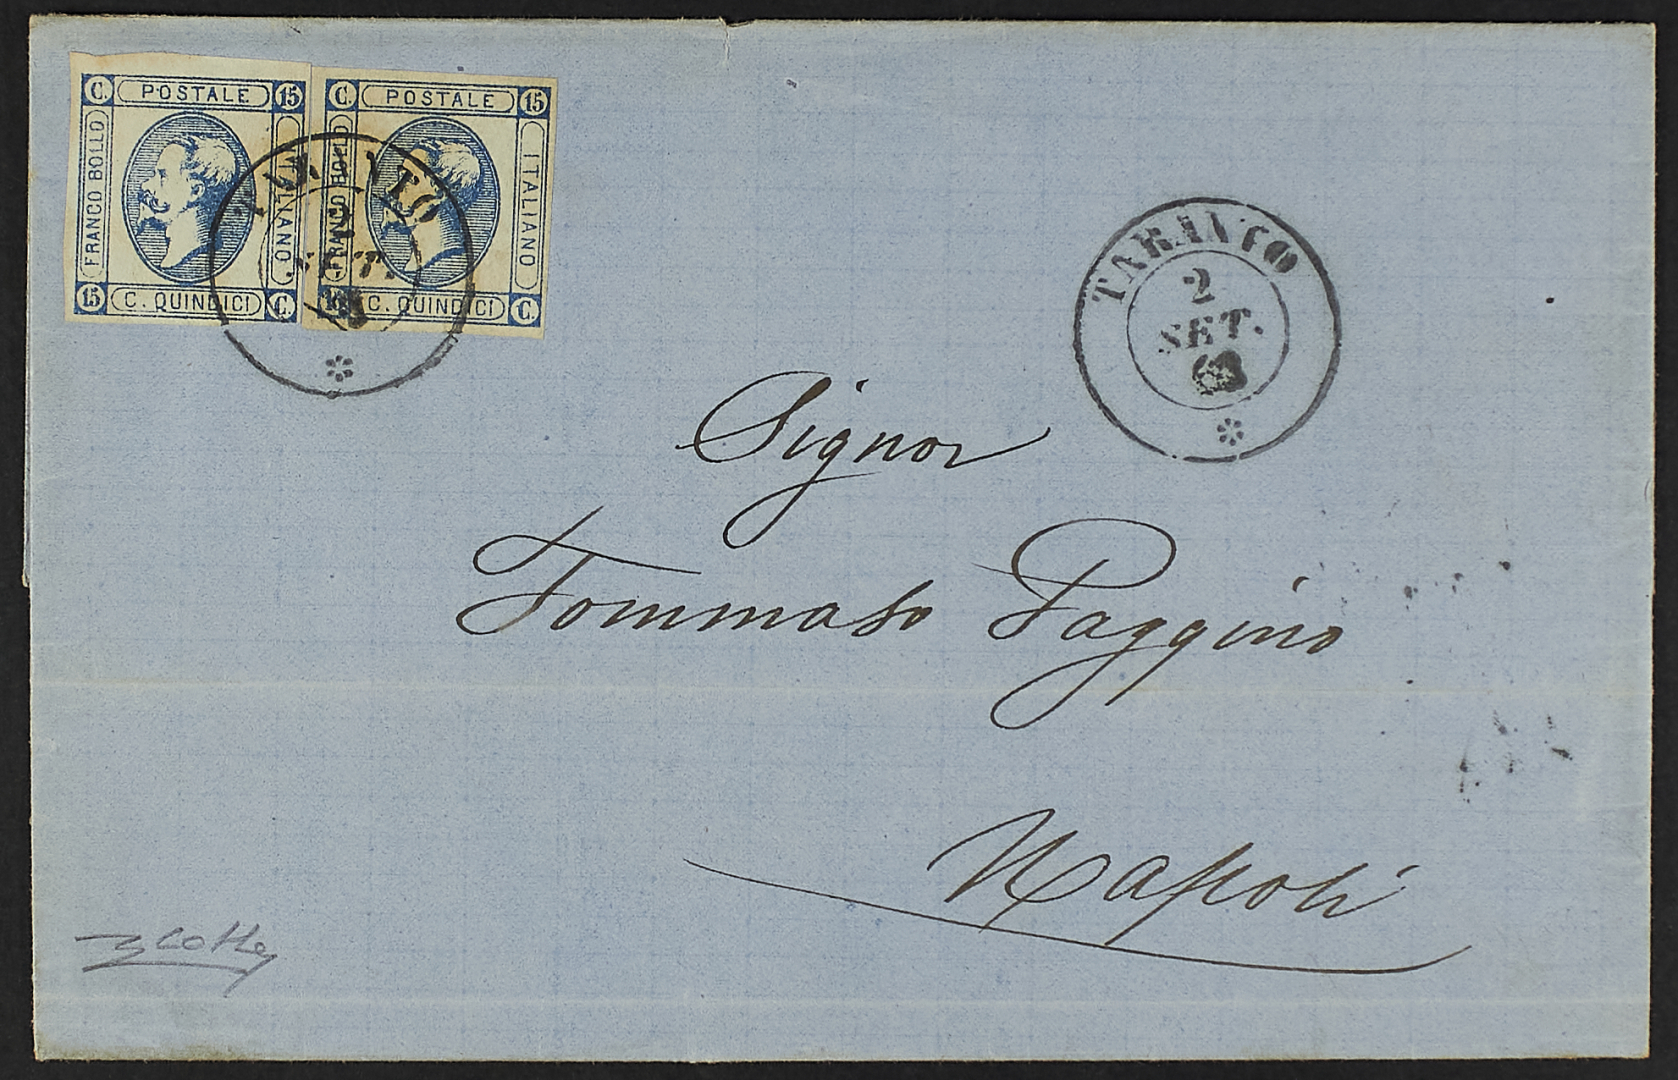 C. POSTALE 15
FRANCO BOLLO
ITALIANO
15 C. QUINDICI C.
C. POSTALE 15
FRANCO BOLLO
ITALIANO
15 C. QUINDICI C.
TARANTO
2
SET.
TARANTO
2
SET.
63
Signor
Tommaso Paggino
Napoli